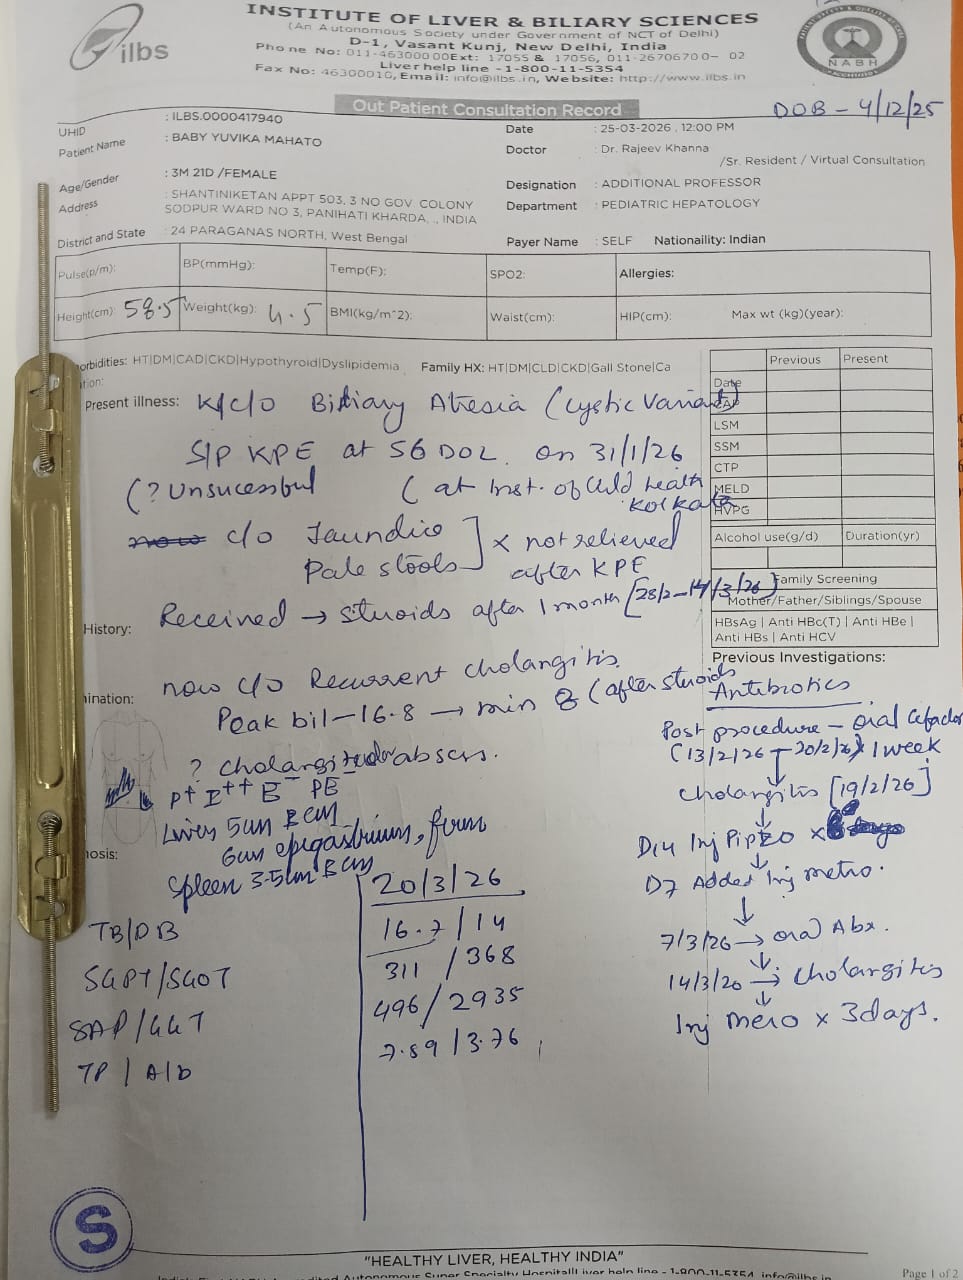 INSTITUTE OF LIVER & BILIARY SCIENCES
(An Autonomous Society under Government of NCT of Delhi)
D-1, Vasant Kunj, New Delhi, India
Phone No: 011-46300000Ext: 17055 & 17056, 011-26706700- 02
Liver help line -1-800-11-5354
Fax No: 46300010, Email: info@ilbs.in, Website: http://www.ilbs.in
ilbs
NABH
Out Patient Consultation Record
DOB - 4/12/25
UHID : ILBS.0000417940
Date : 25-03-2026 , 12:00 PM
Patient Name : BABY YUVIKA MAHATO
Doctor : Dr. Rajeev Khanna
/Sr. Resident / Virtual Consultation
Age/Gender : 3M 21D /FEMALE
Designation : ADDITIONAL PROFESSOR
Address : SHANTINIKETAN APPT 503, 3 NO GOV. COLONY
SODPUR WARD NO 3, PANIHATI KHARDA, ., INDIA
Department : PEDIATRIC HEPATOLOGY
District and State 24 PARAGANAS NORTH, West Bengal
Payer Name : SELF Nationaility: Indian
Pulse(p/m): BP(mmHg): Temp(F): SPO2: Allergies:
Height(cm): 58.5 Weight(kg): 4.5 BMI(kg/m^2): Waist(cm): HIP(cm): Max wt (kg)(year):
orbidities: HT|DM|CAD|CKD|Hypothyroid|Dyslipidemia Family HX: HT|DM|CLD|CKD|Gall Stone|Ca
tion:
Previous Present
Date
CAP
LSM
SSM
CTP
MELD
HVPG
Alcohol use(g/d) Duration(yr)
Family Screening
Mother/Father/Siblings/Spouse
HBsAg | Anti HBc(T) | Anti HBe |
Anti HBs | Anti HCV
Present illness: K/c/o Biliary Atresia (cystic variant)
S/P KPE at 56 DOL. on 31/1/26
(? Unsucessful (at Inst. of Child health
Kolkata
now c/o Jaundice
Pale stools ] x not relieved
after KPE
Received → steroids after 1 month [28/2-14/3/26]
History:
now c/o Recurrent cholangitis
Peak bil - 16.8 → min 8 (after steroids
? cholangitic abscess.
ination:
P+ I++ E- PE
Liver 5cm BCM
6cm epigastrium, firm
Spleen 3.5cm BCM
nosis:
20/3/26
TB/DB 16.7/14
SGPT/SGOT 311 / 368
SAP/GGT 496/2935
TP / Alb 7.59 / 3.76
Previous Investigations:
Antibiotics
Post procedure - oral
(13/2/26 - 20/2/26) 1 week
↓
Cholangitis [19/2/26]
↓
D14 Inj Pipzo x
↓
D7 Added Inj metro.
↓
7/3/26 → oral Abx.
↓
14/3/20 → cholangitis
↓
Inj Mero x 3days.
S
"HEALTHY LIVER, HEALTHY INDIA"
Autonomous Super Specialty Hospital|Liver help line - 1-800-11-5354 info@ilbs.in
Page 1 of 2